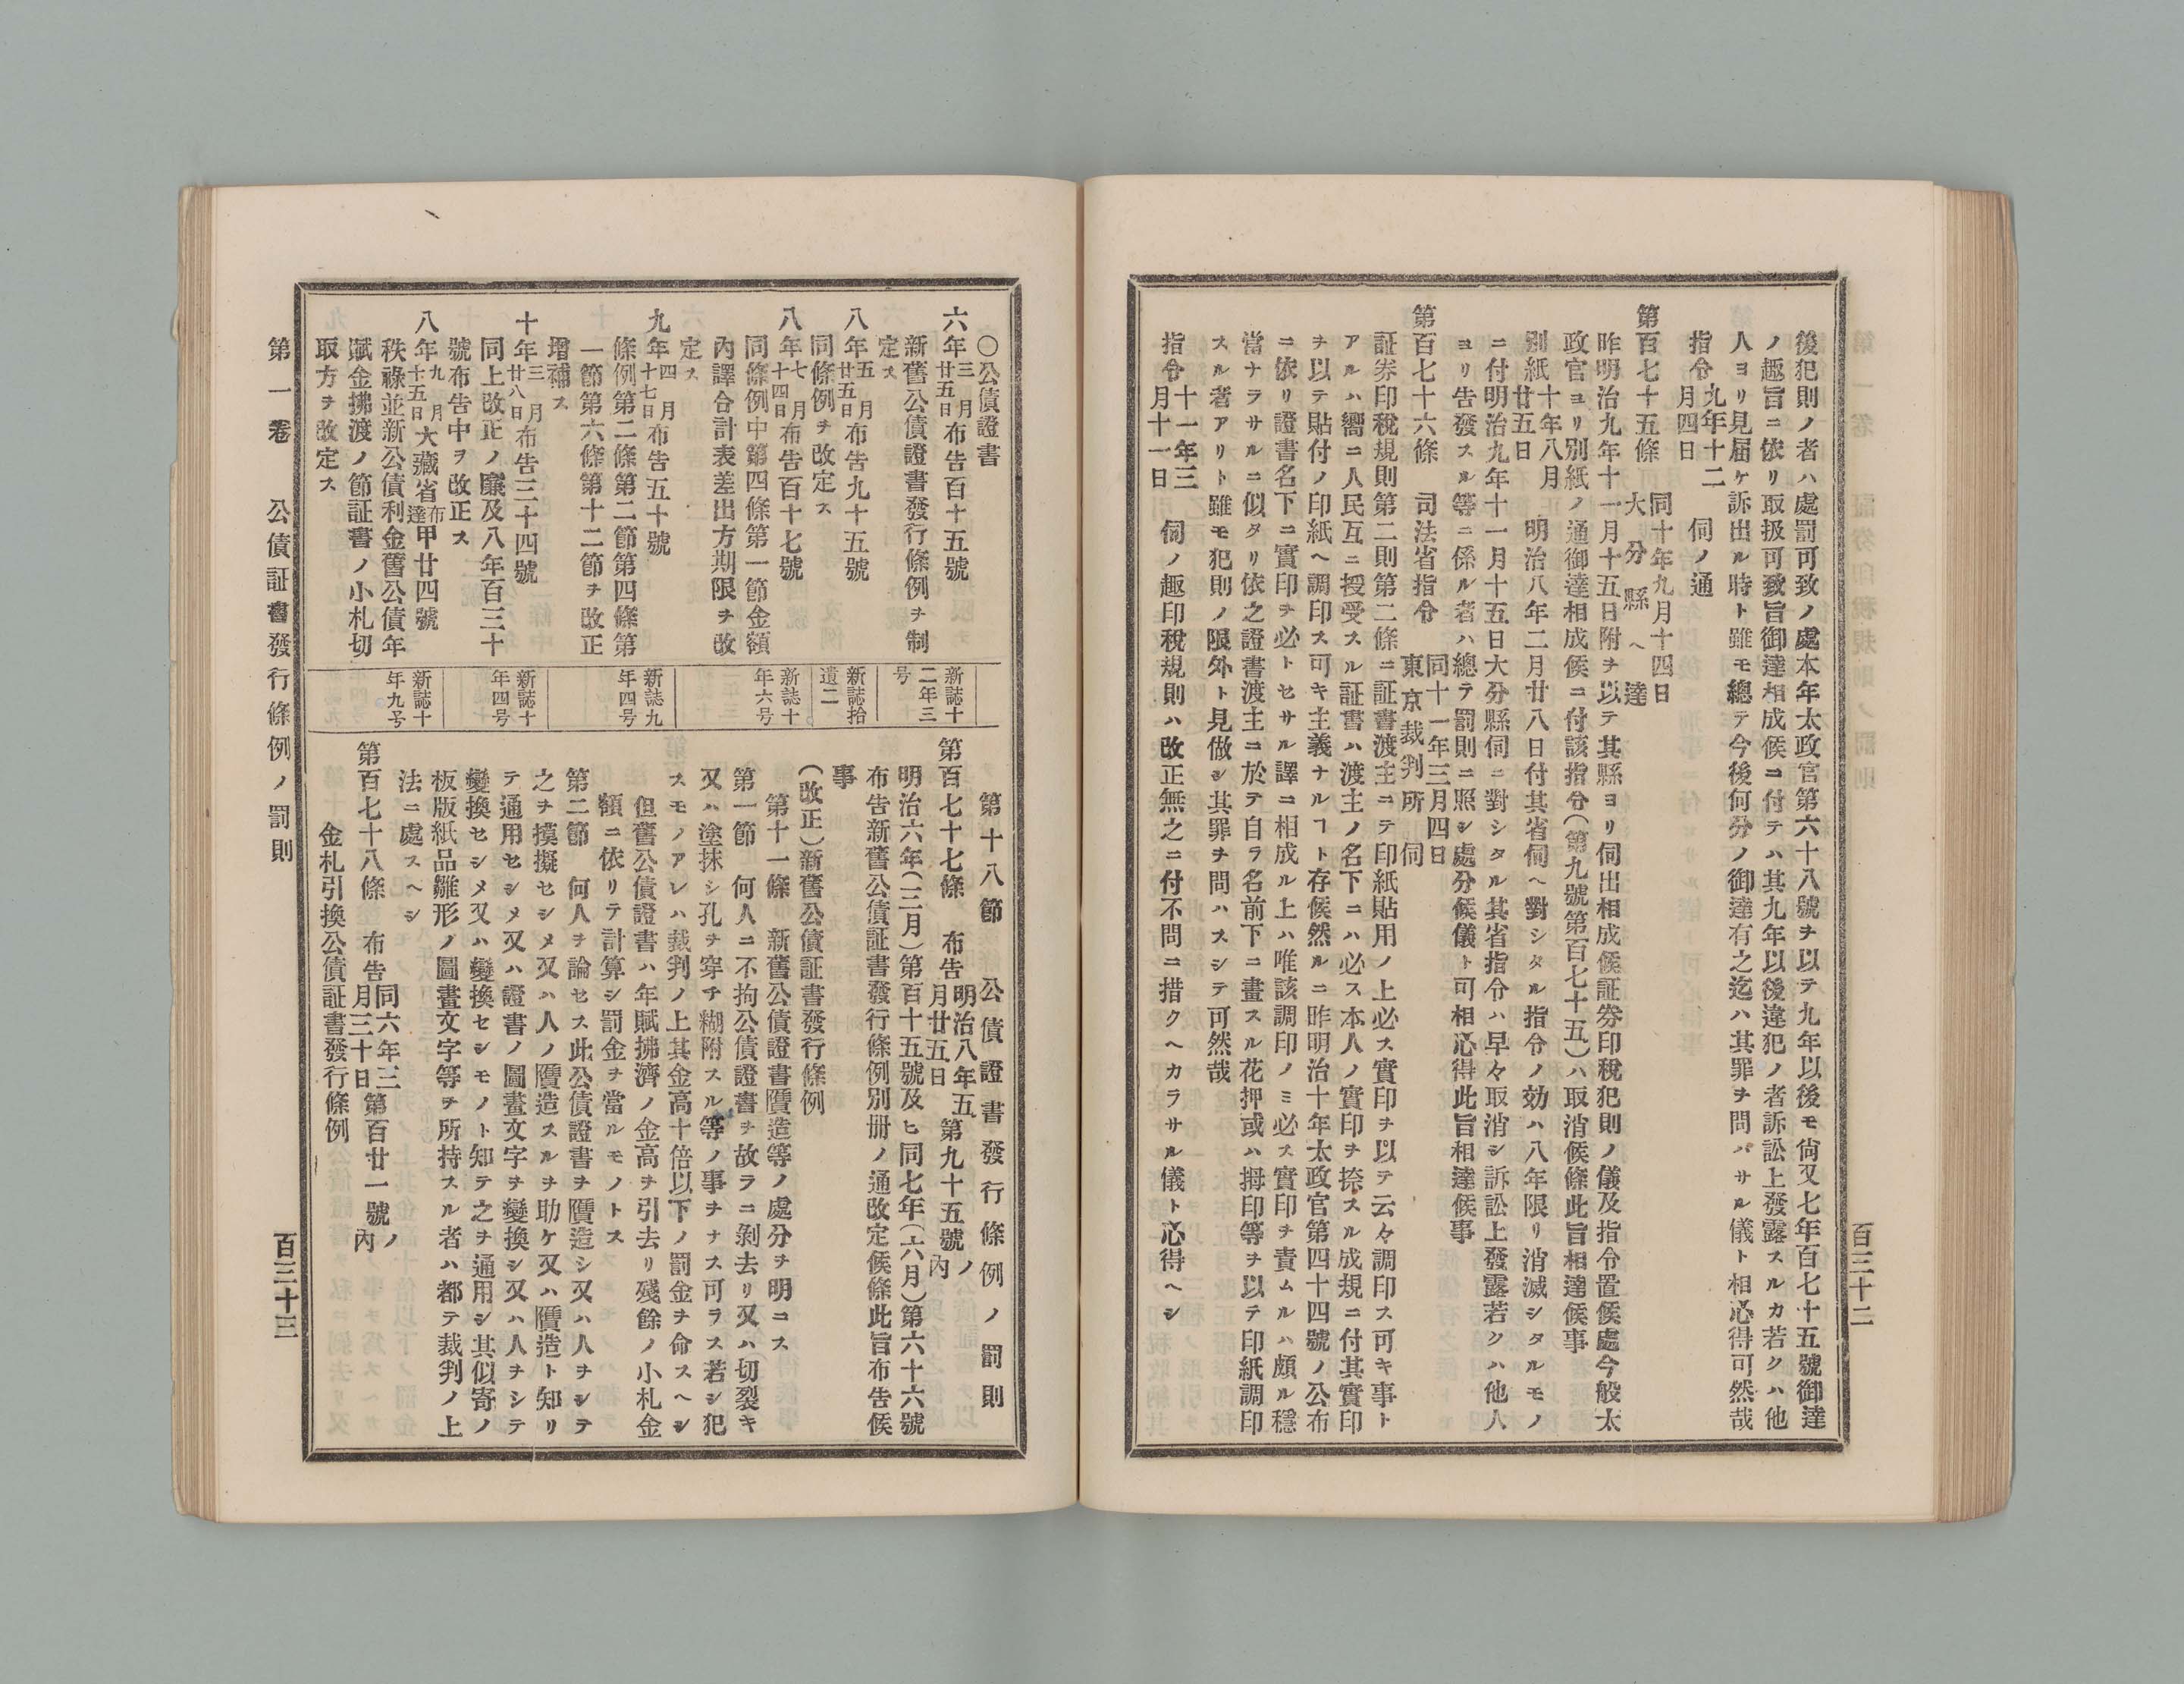 百三十二
後犯則ノ者ハ處罰可致ノ處本年太政官第六十八號ヲ以テ九年以後モ尙又七年百七十五號御達
ノ趣旨ニ依リ取扱可致旨御達相成候ニ付テハ其九年以後違犯ノ者訴訟上發露スルカ若クハ他
人ヨリ見届ケ訴出ル時ト雖モ總テ今後何分ノ御達有之迄ハ其罪ヲ問バサル儀ト相心得可然哉
指令九年十二月四日 伺ノ通
第百七十五條 同十年九月十四日大分縣ヘ達
昨明治九年十一月十五日附ヲ以テ其縣ヨリ伺出相成候証券印稅犯則ノ儀及指令置候處今般太
政官ヨリ別紙ノ通御達相成候ニ付該指令(第九號第百七十五)ハ取消候條此旨相達候事
別紙十年八月廿五日 明治八年二月廿八日付其省伺ヘ對シタル指令ノ効ハ八年限リ消滅シタルモノ
ニ付明治九年十一月十五日大分縣伺ニ對シタル其省指令ハ早々取消シ訴訟上發露若クハ他人
ヨリ告發スル等ニ係ル者ハ總テ罰則ニ照シ處分候儀ト可相心得此旨相達候事
第百七十六條 司法省指令 同十一年三月四日東京裁判所伺
証券印稅規則第二則第二條ニ証書渡主ニテ印紙貼用ノ上必ス實印ヲ以テ云々調印ス可キ事ト
アルハ嚮ニ人民互ニ授受スル証書ハ渡主ノ名下ニハ必ス本人ノ實印ヲ捺スル成規ニ付其實印
ヲ以テ貼付ノ印紙ヘ調印ス可キ主義ナルヿト存候然ルニ昨明治十年太政官第四十四號ノ公布
ニ依リ證書名下ニ實印ヲ必トセサル譯ニ相成ル上ハ唯該調印ノミ必ス實印ヲ責ムルハ頗ル穩
當ナラサルニ似タリ依之證書渡主ニ於テ自ラ名前下ニ畫スル花押或ハ拇印等ヲ以テ印紙調印
スル者アリト雖モ犯則ノ限外ト見做シ其罪ヲ問ハスシテ可然哉
指令十一年三月十一日 伺ノ趣印稅規則ハ改正無之ニ付不問ニ措クヘカラサル儀ト心得ヘシ
〇公債證書
六年三月廿五日布告百十五號
新舊公債證書發行條例ヲ制
定ス
八年五月廿五日布告九十五號
同條例ヲ改定ス
八年七月十四日布告百十七號
同條例中第四條第一節金額
內譯合計表差出方期限ヲ改
定ス
九年四月十七日布告五十號
條例第二條第二節第四條第
一節第六條第十二節ヲ改正
增補ス
十年三月廿八日布告三十四號
同上改正ノ廉及八年百三十
號布告中ヲ改正ス
八年九月十五日大藏省布達甲廿四號
秩祿並新公債利金舊公債年
賦金拂渡ノ節証書ノ小札切
取方ヲ改定ス
新誌十二年三号
新誌拾遺二
新誌十年六号
新誌九年四号
新誌十年四号
新誌十年九号
第十八節 公債證書發行條例ノ罰則
第百七十七條 布告明治八年五月廿五日第九十五號ノ內
明治六年(三月)第百十五號及ヒ同七年(六月)第六十六號
布告新舊公債証書發行條例別冊ノ通改定候條此旨布告候
事
(改正)新舊公債証書發行條例
第十一條 新舊公債證書贋造等ノ處分ヲ明ニス
第一節 何人ニ不拘公債證書ヲ故ラニ剝去リ又ハ切裂キ
又ハ塗抹シ孔ヲ穿チ糊附スル等ノ事ヲナス可ラス若シ犯
スモノアレハ裁判ノ上其金高十倍以下ノ罰金ヲ命スヘシ
但舊公債證書ハ年賦拂濟ノ金高ヲ引去リ殘餘ノ小札金
額ニ依リテ計算シ罰金ヲ當ルモノトス
第二節 何人ヲ論セス此公債證書ヲ贋造シ又ハ人ヲシテ
之ヲ摸擬セシメ又ハ人ノ贋造スルヲ助ケ又ハ贋造ト知リ
テ通用セシメ又ハ證書ノ圖畫文字ヲ變換シ又ハ人ヲシテ
變換セシメ又ハ變換セシモノト知テ之ヲ通用シ其似寄ノ
板版紙品雛形ノ圖畫文字等ヲ所持スル者ハ都テ裁判ノ上
法ニ處スヘシ
第百七十八條 布告同六年三月三十日第百廿一號ノ內
金札引換公債証書發行條例
第一卷 公債証書發行條例ノ罰則 百三十三